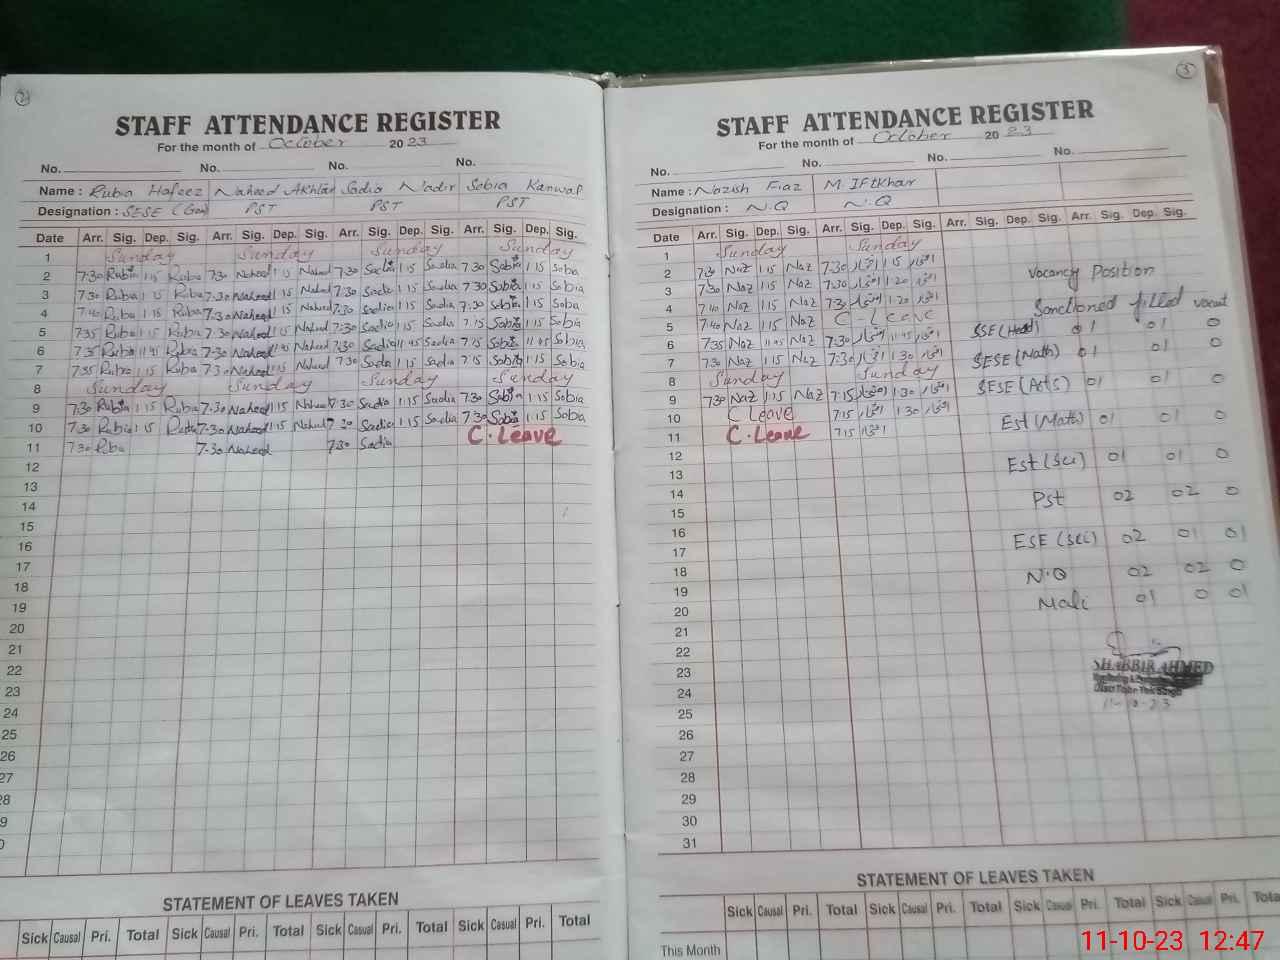 2
STAFF ATTENDANCE REGISTER
For the month of October 2023
No. No. No. No.
Name : Rubia Hafeez Naheed Akhtar Sadia Nadir Sobia Kanwal
Designation : SESE (Gen) PST PST PST
Date Arr. Sig. Dep. Sig. Arr. Sig. Dep. Sig. Arr. Sig. Dep. Sig. Arr. Sig. Dep. Sig.
1 Sunday Sunday Sunday Sunday
2 7:30 Rubia 1:15 Rubia 7:30 Naheed 1:15 Naheed 7:30 Sadia 1:15 Sadia 7:30 Sobia 1:15 Sobia
3 7:30 Rubia 1:15 Rubia 7:30 Naheed 1:15 Naheed 7:30 Sadia 1:15 Sadia 7:30 Sobia 1:15 Sobia
4 7:40 Rubia 1:15 Rubia 7:30 Naheed 1:15 Naheed 7:30 Sadia 1:15 Sadia 7:30 Sobia 1:15 Sobia
5 7:35 Rubia 1:15 Rubia 7:30 Naheed 1:15 Naheed 7:30 Sadia 1:15 Sadia 7:15 Sobia 1:15 Sobia
6 7:35 Rubia 11:45 Rubia 7:30 Naheed 11:45 Naheed 7:30 Sadia 11:45 Sadia 7:15 Sobia 11:45 Sobia
7 7:35 Rubia 1:15 Rubia 7:30 Naheed 1:15 Naheed 7:30 Sadia 1:15 Sadia 7:15 Sobia 1:15 Sobia
8 Sunday Sunday Sunday Sunday
9 7:30 Rubia 1:15 Rubia 7:30 Naheed 1:15 Naheed 7:30 Sadia 1:15 Sadia 7:30 Sobia 1:15 Sobia
10 7:30 Rubia 1:15 Rubia 7:30 Naheed 1:15 Naheed 7:30 Sadia 1:15 Sadia 7:30 Sobia 1:15 Sobia
11 7:30 Rubia 7:30 Naheed 7:30 Sadia C.Leave
12
13
14
15
16
17
18
19
20
21
22
23
24
25
26
27
28
9
0
STATEMENT OF LEAVES TAKEN
Sick Casual Pri. Total Sick Casual Pri. Total Sick Casual Pri. Total Sick Casual Pri. Total
3
STAFF ATTENDANCE REGISTER
For the month of October 2023
No. No. No. No.
Name : Nazish Fiaz M. Iftkhar
Designation : N.Q N.Q
Date Arr. Sig. Dep. Sig. Arr. Sig. Dep. Sig. Arr. Sig. Dep. Sig. Arr. Sig. Dep. Sig.
1 Sunday Sunday
2 7:30 Naz 1:15 Naz 7:30 افتخار 1:15 افتخار
3 7:30 Naz 1:15 Naz 7:30 افتخار 1:20 افتخار
4 7:40 Naz 1:15 Naz 7:30 افتخار 1:20 افتخار
5 7:40 Naz 1:15 Naz C - Leave
6 7:35 Naz 11:45 Naz 7:30 افتخار 11:45 افتخار
7 7:30 Naz 1:15 Naz 7:30 افتخار 1:30 افتخار
8 Sunday Sunday
9 7:30 Naz 1:15 Naz 7:15 افتخار 1:30 افتخار
10 C Leave 7:15 افتخار 1:30 افتخار
11 C.Leave 7:15 افتخار
12
13
14
15
16
17
18
19
20
21
22
23
24
25
26
27
28
29
30
31
Vacancy Position
Sanctioned filled vacant
SSE (Head) 01 01 0
SESE (Math) 01 01 0
SESE (Arts) 01 01 0
Est (Math) 01 01 0
Est (Sci) 01 01 0
Pst 02 02 0
ESE (Sci) 02 01 01
N.Q 02 02 0
Mali 01 0 01
SHABBIR AHMED
Distt Toba Tek Singh
11-10-23
STATEMENT OF LEAVES TAKEN
Sick Casual Pri. Total Sick Casual Pri. Total Sick Casual Pri. Total Sick Casual Pri. Total
This Month
11-10-23 12:47